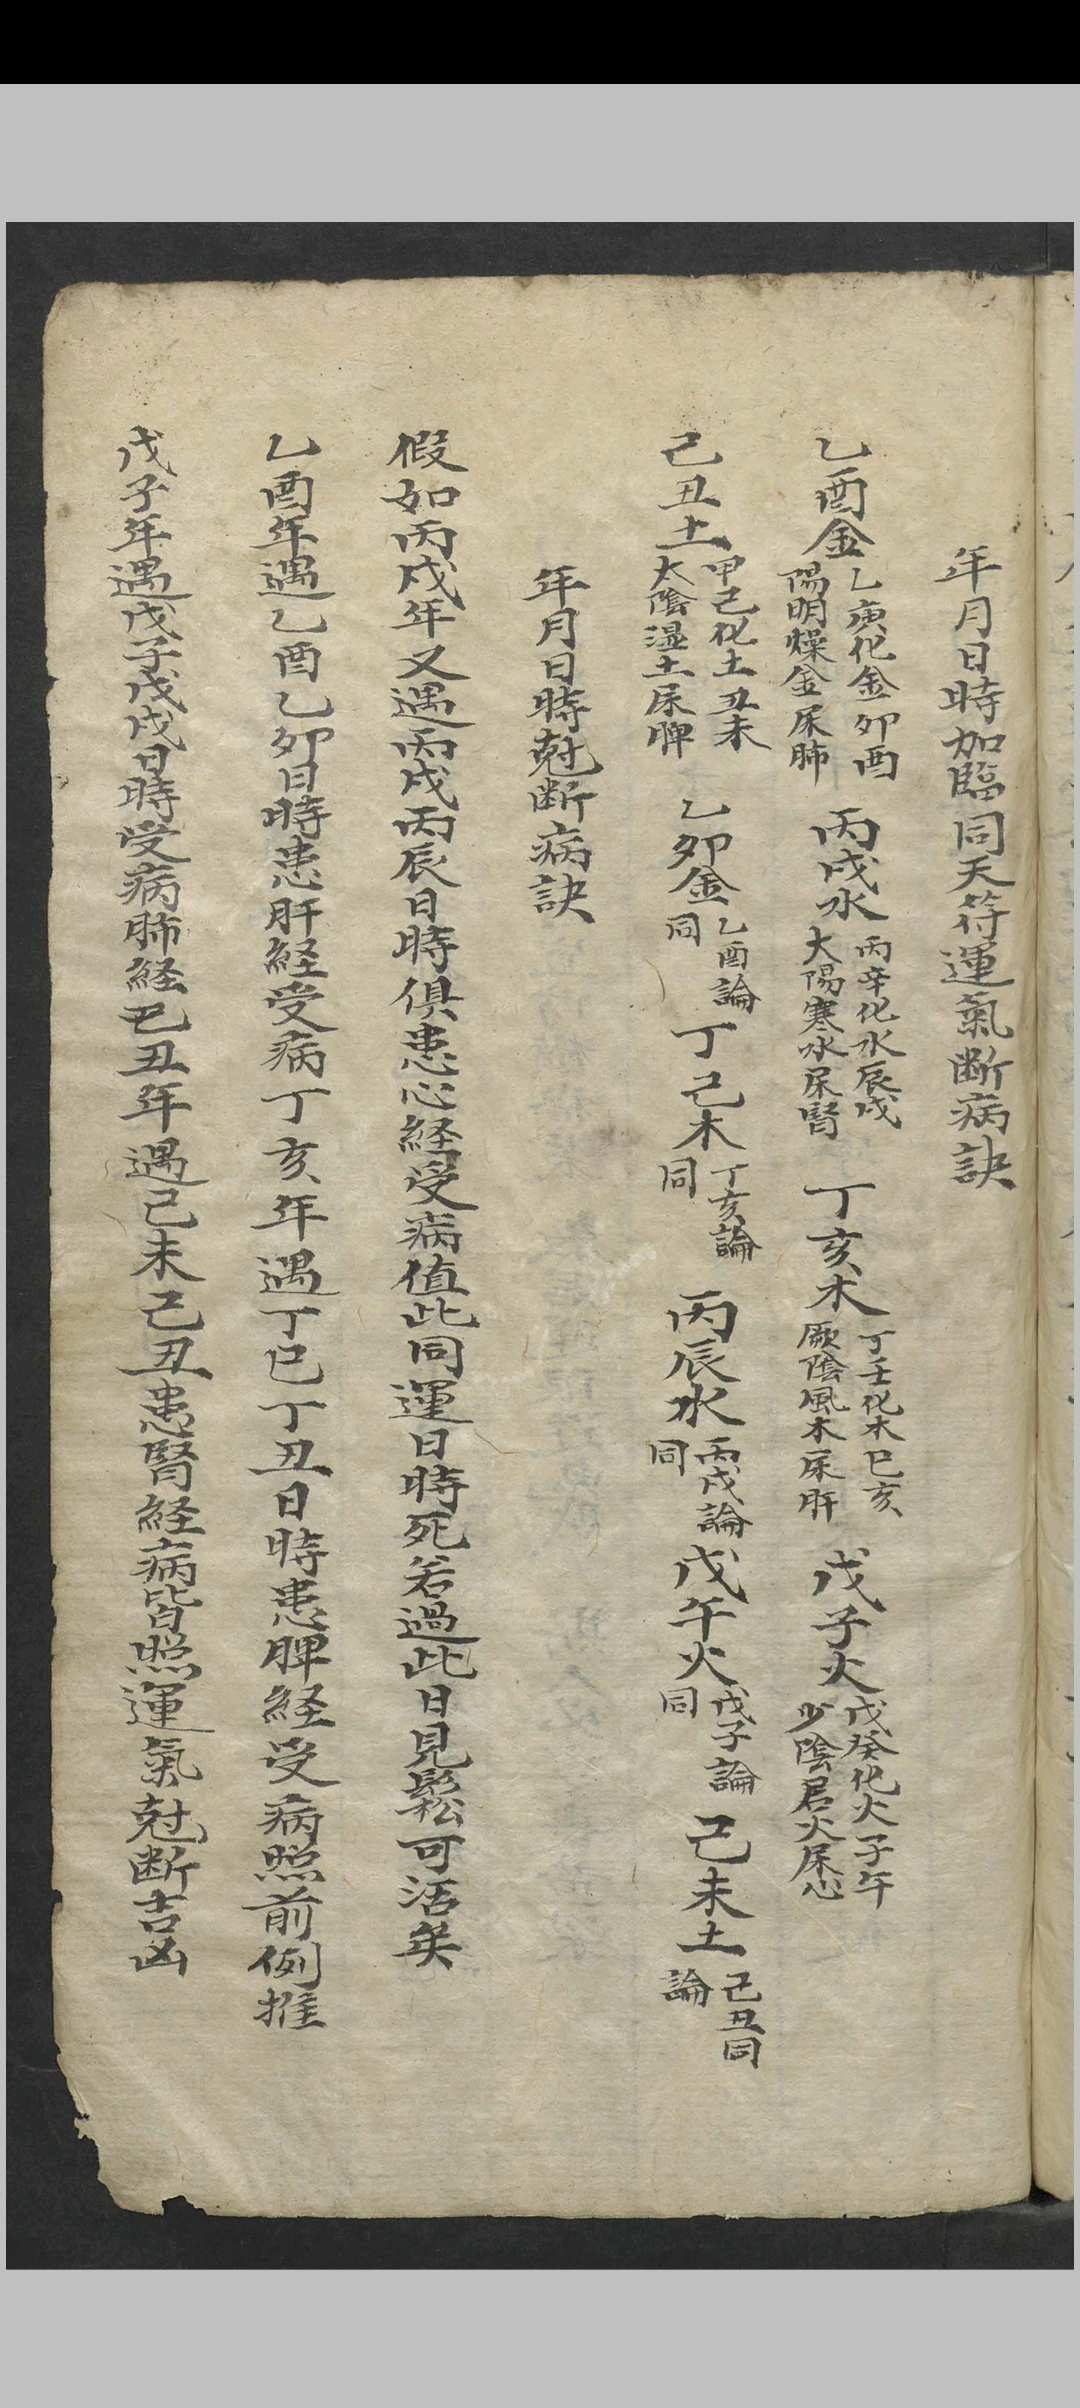 年月日時加臨同天符運氣断病訣
乙酉金乙庚化金卯酉陽明燥金尿肺 丙戌水丙辛化水辰戌太陽寒水尿腎 丁亥木丁壬化木巳亥厥陰風木尿肝 戊子火戊癸化火子午少陰君火尿心
己丑土甲己化土丑未太陰湿土尿脾 乙卯金乙酉論同 丁己木丁亥論同 丙辰水丙戌論同 戊午火戊子論同 己未土己丑同論
年月日時尅断病訣
假如丙戌年又遇丙戌丙辰日時俱患心経受病值此同運日時死若過此日見鬆可活矣
乙酉年遇乙酉乙卯日時患肝経受病丁亥年遇丁巳丁丑日時患脾経受病照前例推
戊子年遇戊子戊戌日時受病肺経己丑年遇己未己丑患腎経病皆照運氣尅断吉凶